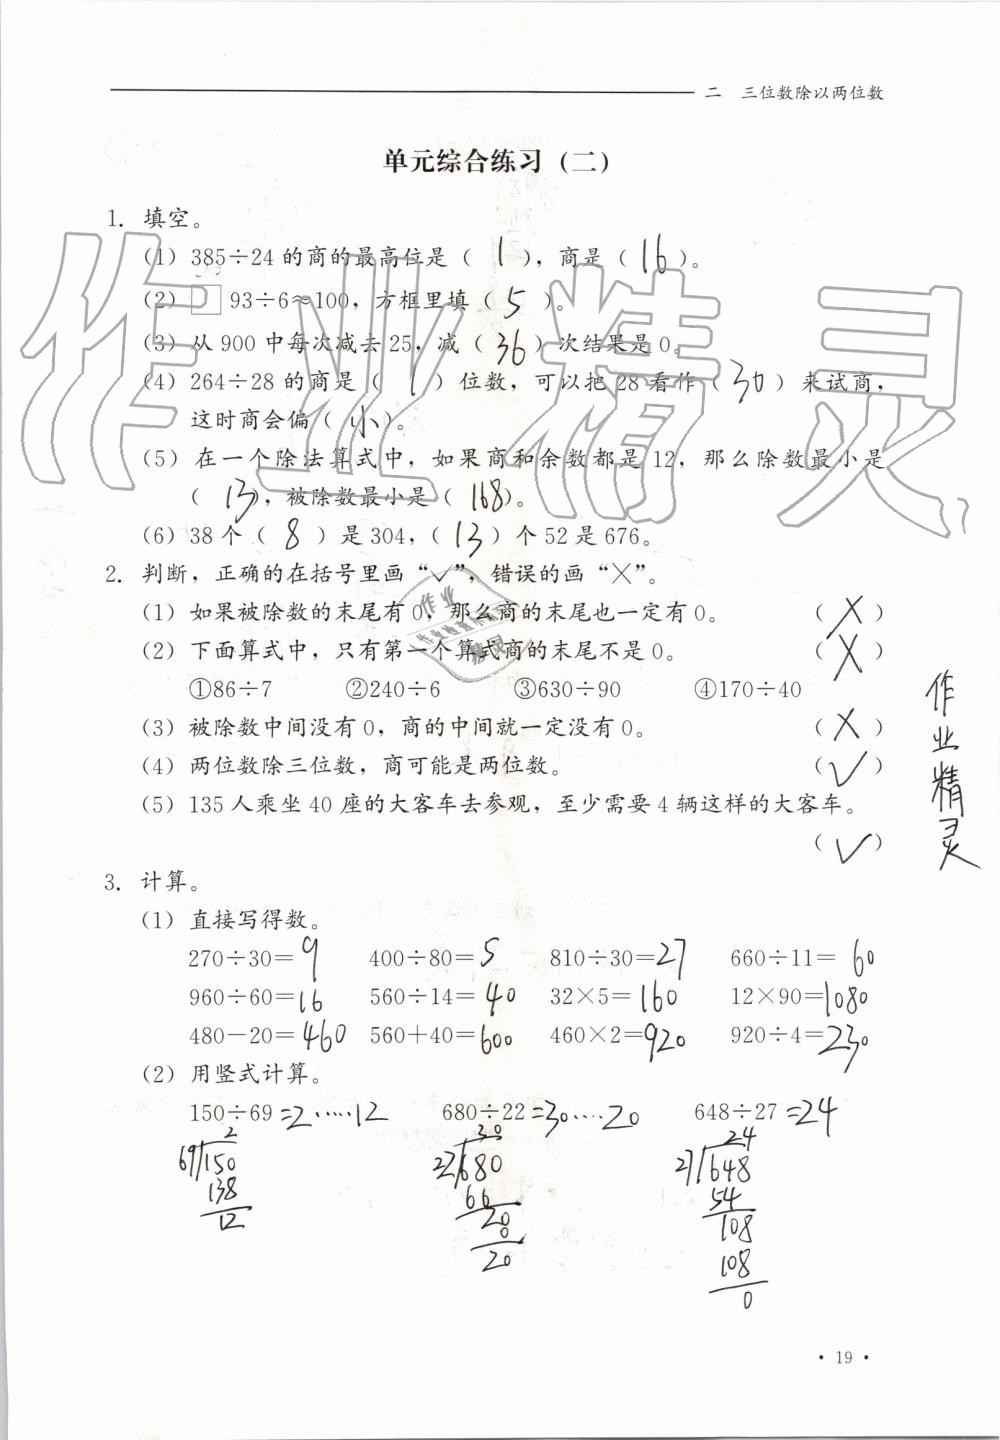 二 三位数除以两位数
单元综合练习（二）
1. 填空。
(1) 385÷24 的商的最高位是（ 1 ），商是（ 16 ）。
(2) □ 93÷6≈100，方框里填（ 5 ）。
(3) 从 900 中每次减去 25，减（ 36 ）次结果是 0。
(4) 264÷28 的商是（ 1 ）位数，可以把 28 看作（ 30 ）来试商，
这时商会偏（ 小 ）。
(5) 在一个除法算式中，如果商和余数都是 12，那么除数最小是
（ 13 ），被除数最小是（ 168 ）。
(6) 38 个（ 8 ）是 304，（ 13 ）个 52 是 676。
2. 判断，正确的在括号里画“✓”，错误的画“×”。
(1) 如果被除数的末尾有 0，那么商的末尾也一定有 0。 （ × ）
(2) 下面算式中，只有第一个算式商的末尾不是 0。 （ × ）
①86÷7 ②240÷6 ③630÷90 ④170÷40
(3) 被除数中间没有 0，商的中间就一定没有 0。 （ × ）
(4) 两位数除三位数，商可能是两位数。 （ ✓ ）
(5) 135 人乘坐 40 座的大客车去参观，至少需要 4 辆这样的大客车。
（ ✓ ）
3. 计算。
(1) 直接写得数。
270÷30=9 400÷80=5 810÷30=27 660÷11=60
960÷60=16 560÷14=40 32×5=160 12×90=1080
480-20=460 560+40=600 460×2=920 920÷4=230
(2) 用竖式计算。
150÷69=2……12 680÷22=30……20 648÷27=24
2 30 24
69 150 22 680 27 648
138 66 54
12 20 108
0 108
20 0
作业精灵
作业精灵
作业
精灵
· 19 ·